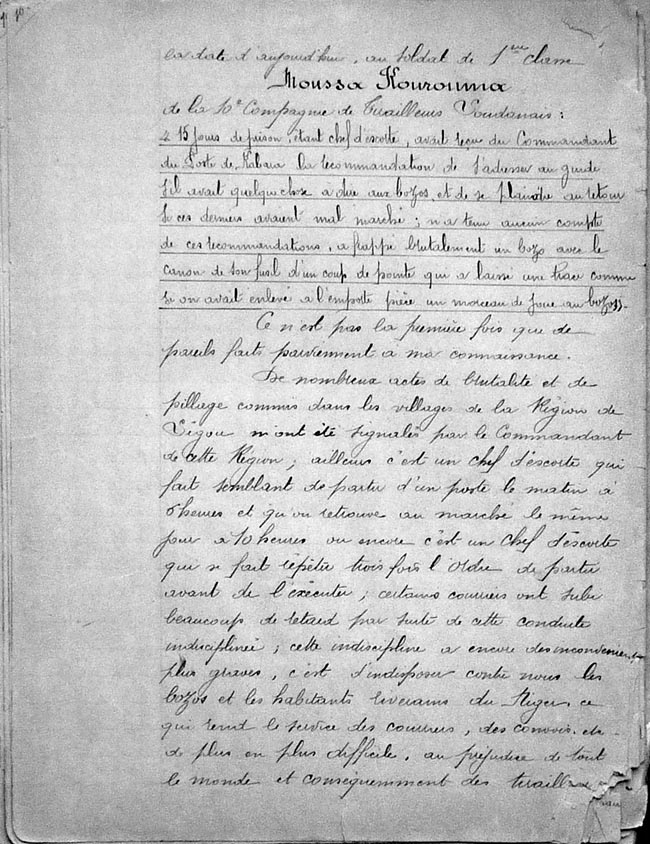 la date d'aujourd'hui, au soldat de 1ère classe
Moussa Kourouma
de la 10e Compagnie de Tirailleurs Soudanais :
" 15 jours de prison, étant chef d'escorte, avait reçu du Commandant
du Poste de Kabara la recommandation de s'adresser au guide
s'il avait quelque chose à dire aux bozos, et de se plaindre au retour
si ces derniers avaient mal marché ; n'a tenu aucun compte
de ces recommandations, a frappé brutalement un bozo avec le
canon de son fusil d'un coup de pointe qui a laissé une trace comme
si on avait enlevé à l'emporte pièce un morceau de joue au bozo".
Ce n'est pas la première fois que de
pareils faits parviennent à ma connaissance.
De nombreux actes de brutalité et de
pillage commis dans les villages de la Région de
Ségou m'ont été signalés par le Commandant
de cette Région ; ailleurs c'est un chef d'escorte qui
fait semblant de partir d'un poste le matin à
6 heures et qu'on retrouve au marché le même
jour à 10 heures ou encore c'est un chef d'escorte
qui se fait répéter trois fois l'ordre de partir
avant de l'exécuter ; certains courriers ont subi
beaucoup de retard par suite de cette conduite
indisciplinée ; cette indiscipline a encore des inconvénients
plus graves, c'est d'indisposer contre nous les
bozos et les habitants riverains du Niger, ce
qui rend le service des courriers, des convois, etc.
de plus en plus difficile, au préjudice de tout
le monde et conséquemment des tirailleurs